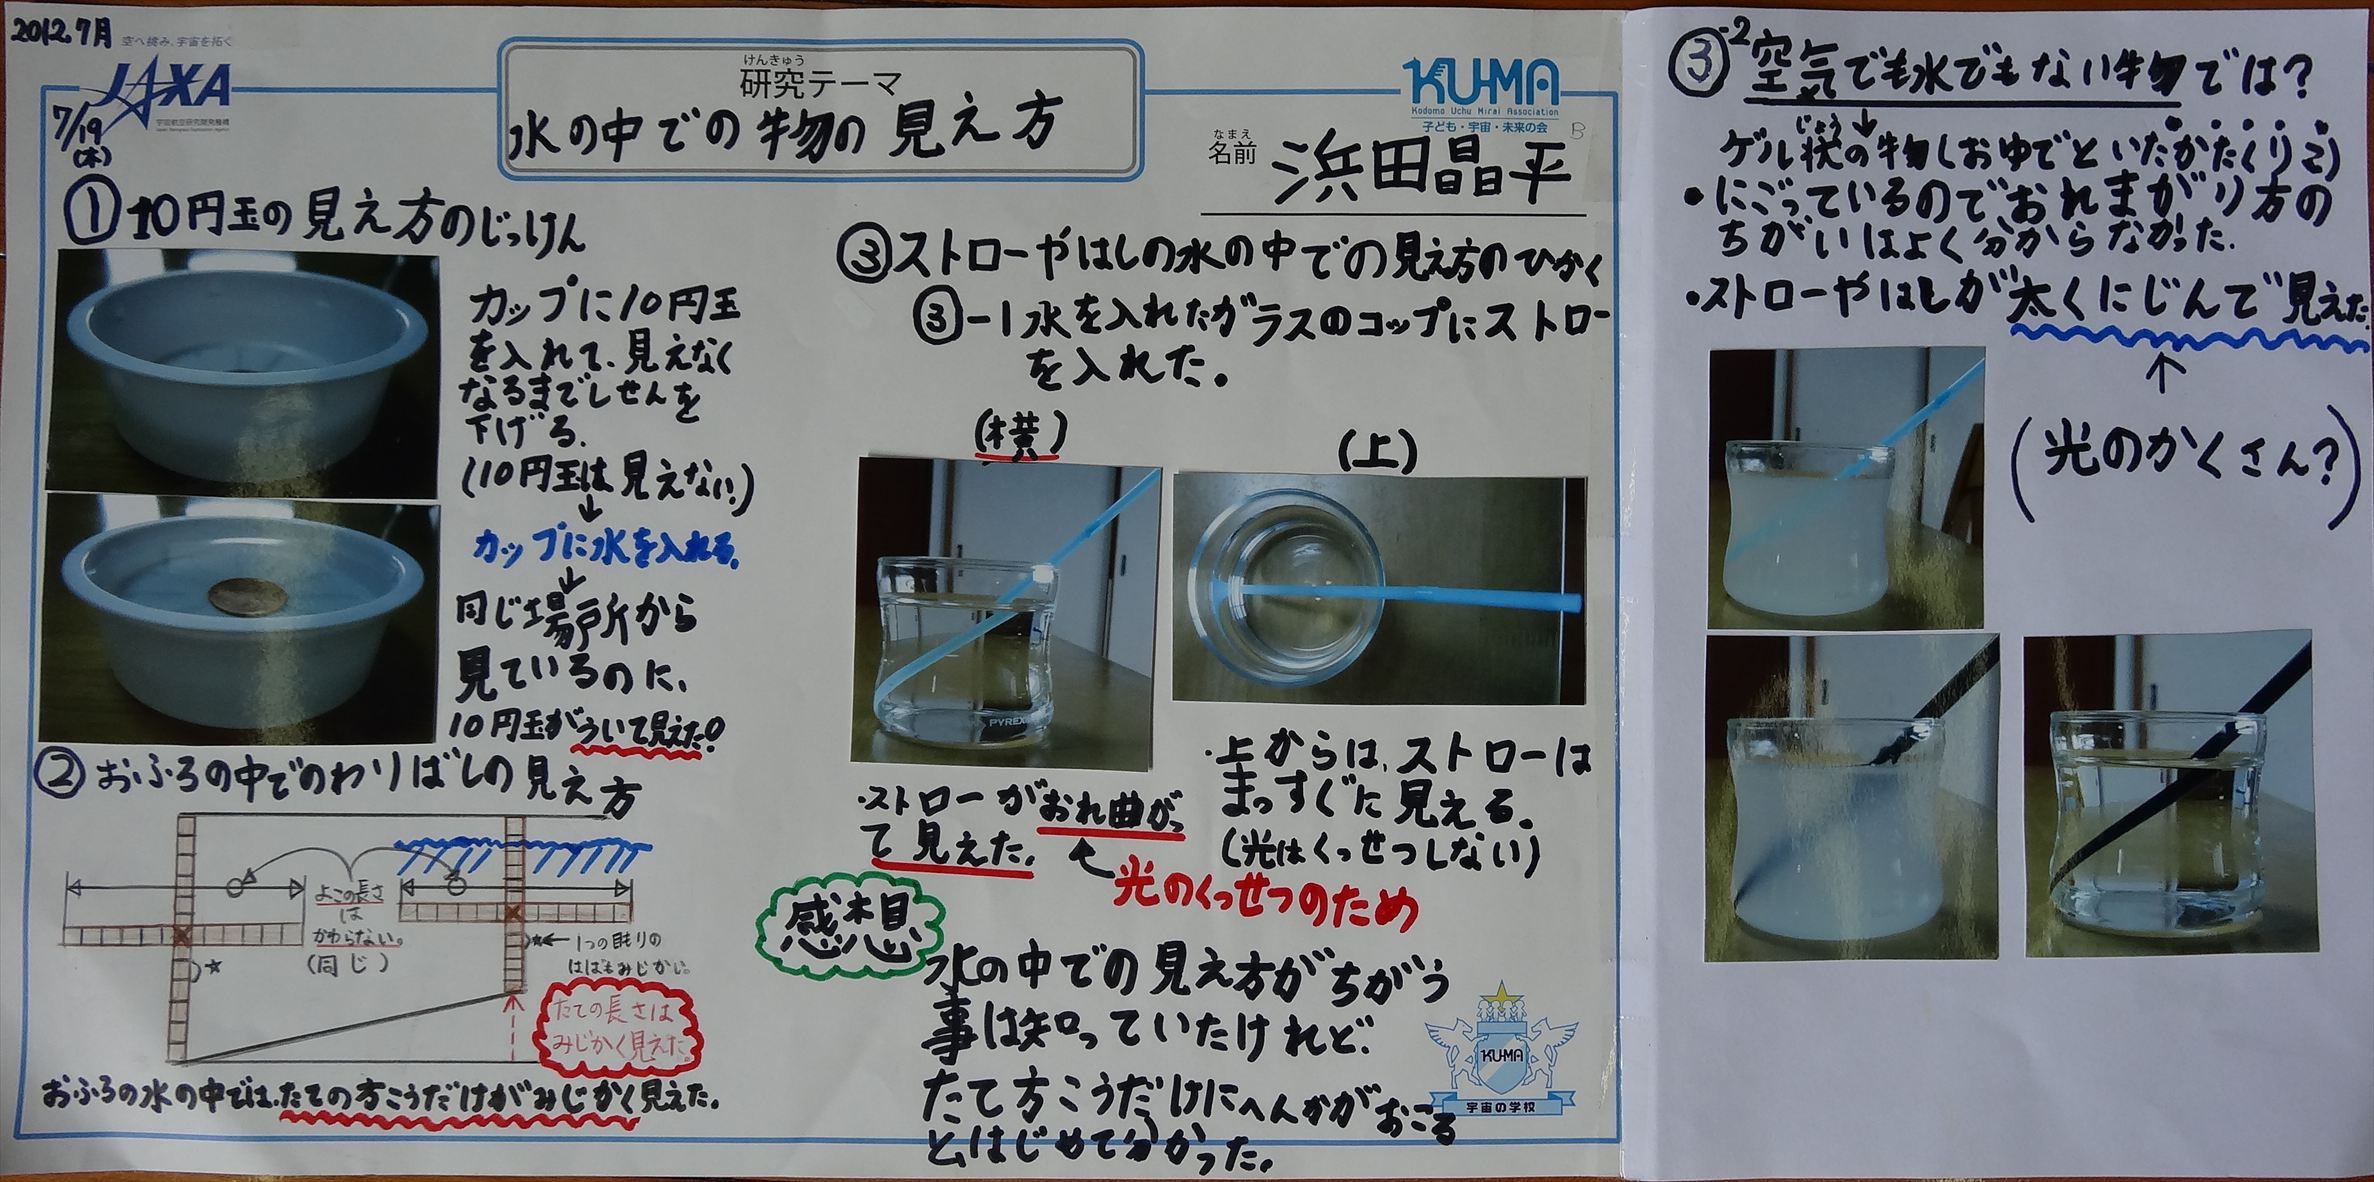 2012.7月
空へ挑み、宇宙を拓く
JAXA
宇宙航空研究開発機構
Japan Aerospace Exploration Agency
7/19
(木)
けんきゅう
研究テーマ
水の中での物の見え方
KU-MA
Kodomo Uchu Mirai Association
子ども・宇宙・未来の会
B
なまえ
名前
浜田晶平
①10円玉の見え方のじっけん
カップに10円玉
を入れて、見えなく
なるまでしせんを
下げる.
(10円玉は見えない)
↓
カップに水を入れる.
↓
同じ場所から
見ているのに、
10円玉がういて見えた!
②おふろの中でのわりばしの見え方
よこの長さ
は
かわらない。
(同じ)
☆
★←1つの目もりの
はばもみじかい。
たての長さは
みじかく見えた
おふろの水の中では、たての方こうだけがみじかく見えた.
③ストローやはしの水の中での見え方のひかく
③-1水を入れたガラスのコップにストロー
を入れた。
(横)
(上)
PYREX
・ストローがおれ曲がっ
て見えた.
光のくっせつのため
・上からは、ストローは
まっすぐに見える。
(光はくっせつしない)
感想
水の中での見え方がちがう
事は知っていたけれど、
たて方こうだけにへんかがおこる
とはじめて分かった.
KU-MA
宇宙の学校
③-2空気でも水でもない物では?
じょう
ゲル状の物(おゆでといたかたくりこ)
・にごっているのでおれまがり方の
ちがいはよく分からなかった.
・ストローやはしが太くにじんで見えた.
↑
(光のかくさん?)